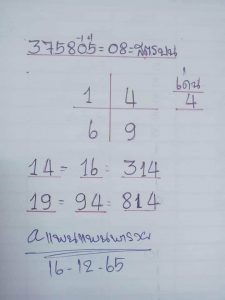 375805=08=สูตรบน
เด่น
1 4
4
6 9
14= 16= 314
19= 94= 814
16-12-65